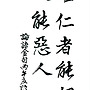 仁者能
能惡人
論語金句丙午年